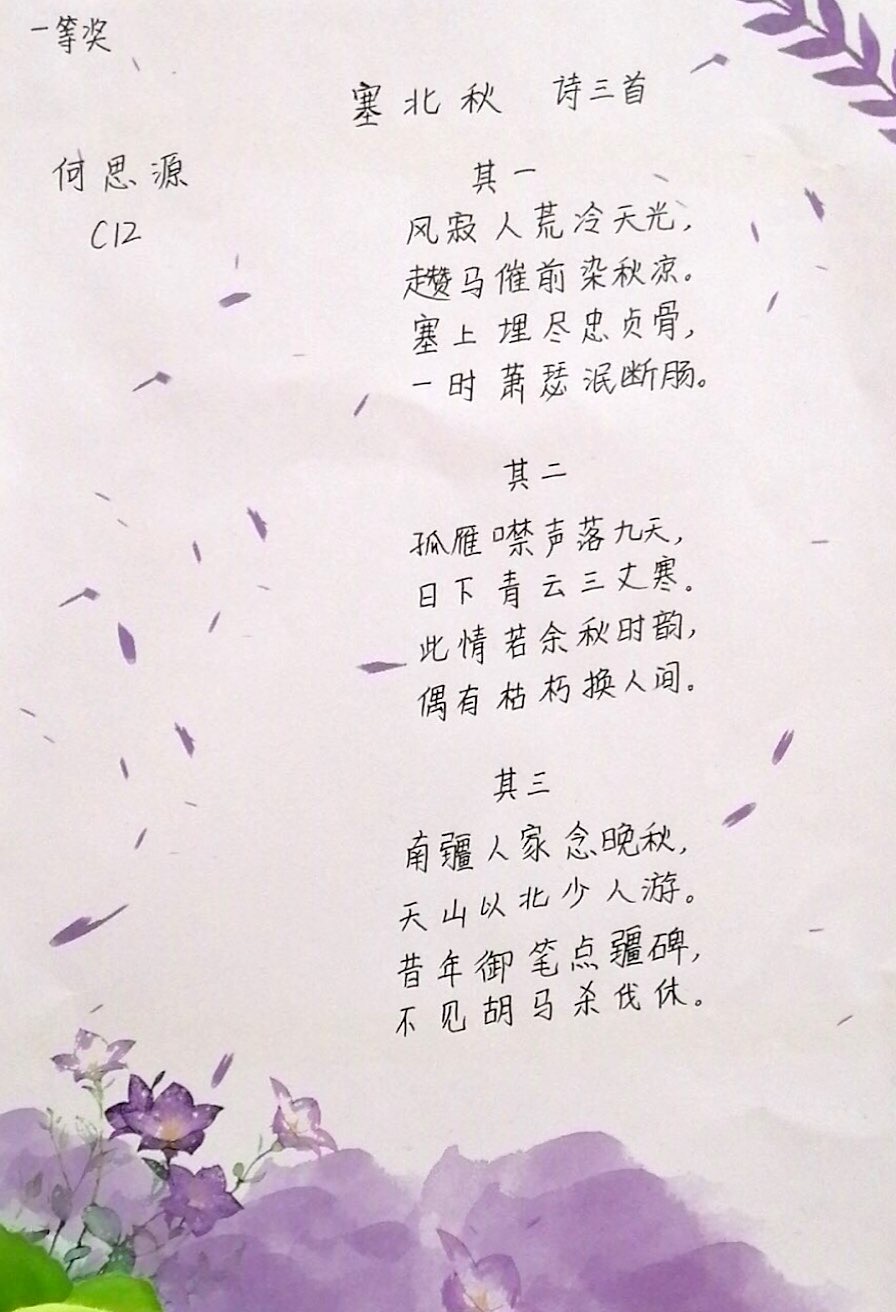 一等奖
塞北秋 诗三首
何思源
C12
其一
风寂人荒冷天光，
趱马催前染秋凉。
塞上埋尽忠贞骨，
一时萧瑟泯断肠。
其二
孤雁噤声落九天，
日下青云三丈寒。
此情若余秋时韵，
偶有枯朽换人间。
其三
南疆人家念晚秋，
天山以北少人游。
昔年御笔点疆碑，
不见胡马杀伐休。